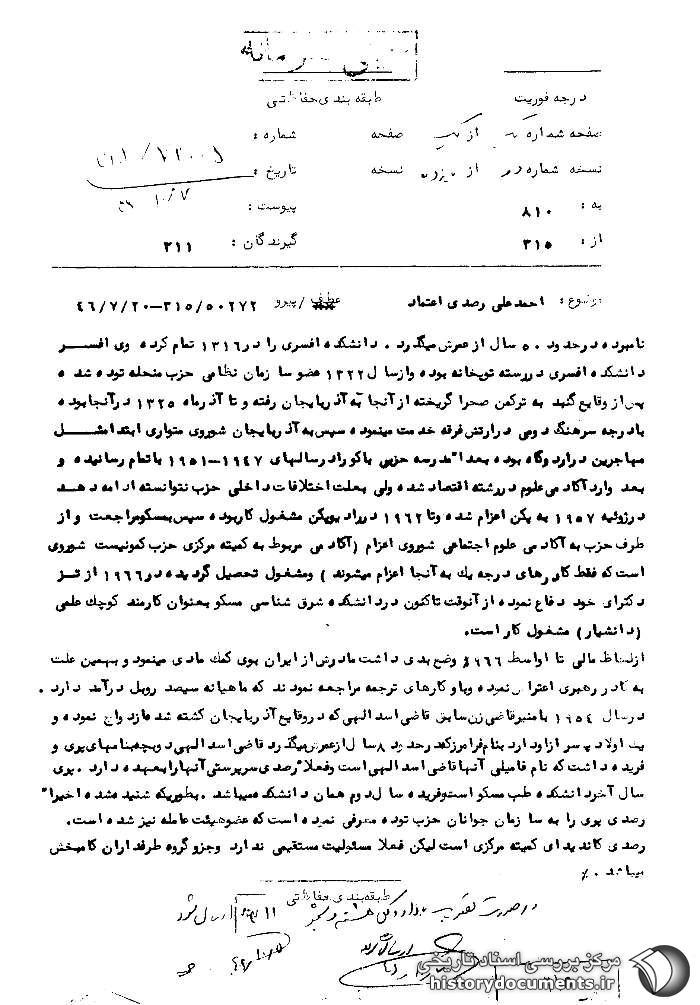 درجه فوریت
طبقه بندی حفاظتی
صفحه شماره یک از یک صفحه
شماره :
نسخه شماره از نسخه
تاریخ :
به : ۸۱۰
پیوست :
از : ۳۱۵
گیرندگان : ۳۱۱
موضوع : احمد علی رصدی اعتماد
عطف / پیرو ۳۱۵/۵۰۲۷۲–۴۶/۷/۲۰
نامبرده در حدود ۵۰ سال از عمرش میگذرد . دانشکده افسری را در ۱۳۱۶ تمام کرده وی افسر
دانشکده افسری در رسته توپخانه بوده و از سال ۱۳۲۲ عضو سا زمان نظامی حزب منحله توده شده
پس از وقایع گنبد به ترکمن صحرا گریخته از آنجا به آذربایجان رفته و تا آذرماه ۱۳۲۵ در آنجا بوده
با درجه سرهنگ دومی در ارتش فرقه خدمت مینموده سپس به آذربایجان شوروی متواری ابتدا مثل
مهاجرین در اردوگاه بوده بعدا" مدرسه حزبی باکو را در سالهای ۱۹۴۷–۱۹۵۱ با تمام رسانیده و
بعد وارد آکادمی علوم در رشته اقتصاد شده ولی بعلت اختلافات داخلی حزب نتوانسته ادامه دهد
در ژوئیه ۱۹۵۷ به پکن اعزام شده و تا ۱۹۶۲ در رادیو پکن مشغول کار بوده سپس بمسکو مراجعت و از
طرف حزب به آکادمی علوم اجتماعی شوروی اعزام (آکادمی مربوط به کمیته مرکزی حزب کمونیست شوروی
است که فقط کادرهای درجه یک به آنجا اعزام میشوند ) و مشغول تحصیل گردیده در ۱۹۶۶ از تز
دکترای خود دفاع نموده از آنوقت تاکنون در دانشکده شرق شناسی مسکو بعنوان کارمند کوچک علمی
(دانشیار) مشغول کار است.
از لحاظ مالی تا اواسط ۱۹۶۶ وضع بدی داشت مادرش از ایران بوی کمک مادی مینمود و بهمین علت
به کادر رهبری اعتراض نموده و باو کارهای ترجمه مراجعه نمودند که ماهیانه سیصد روبل درآمد دارد .
در سال ۱۹۵۴ با منیر قاضی زن سابق قاضی اسد الهی که در وقایع آذربایجان کشته شده ازدواج نموده و
یک اولاد پسر از او دارد بنام فرامرز که در حدود ۸ سال از عمرش میگذرد قاضی اسد الهی دو بچه بنامهای پری و
فریده داشت که نام فامیلی آنها قاضی اسد الهی است و فعلا" رصدی سرپرستی آنها را بعهده دارد . پری
سال آخر دانشکده طب مسکو است و فریده سال دوم همان دانشکده میباشد . بطوریکه شنیده شده اخیرا"
رصدی پری را به سا زمان جوانان حزب توده معرفی نموده است که عضو هیئت عامله نیز شده است.
رصدی کاندیدای کمیته مرکزی است لیکن فعلا مسئولیت مستقیمی ندارد و جزو گروه طرفداران کامبخش
میباشد . ٪
طبقه بندی حفاظتی
مرکز بررسی اسناد تاریخی
historydocuments.ir